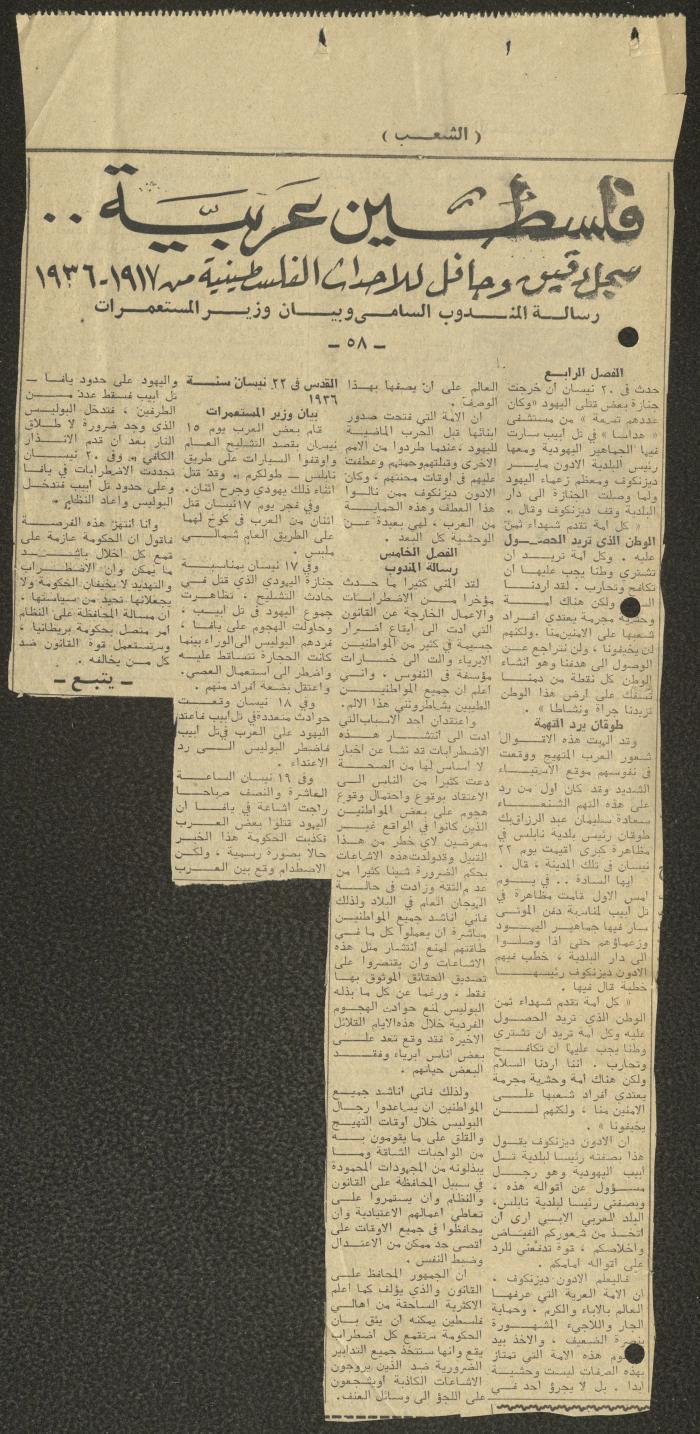 ( الشعب )
فلسطين عربية ..
سجل دقيق وحافل للاحداث الفلسطينية من ١٩١٧-١٩٣٦
رسالة المندوب السامى وبيان وزير المستعمرات
- ٥٨ -
الفصل الرابع
حدث في ٢٠ نيسان ان خرجت
جنازة بعض قتلى اليهود «وكان
عددهم تسعة » من مستشفى
« هداسا » في تل أبيب سارت
فيها الجماهير اليهودية ومعها
رئيس البلدية الادون مايـر
ديزنكوف ومعظم زعماء اليهود
ولما وصلت الجنازة الى دار
البلدية وقف ديزنكوف وقال ..
« كل امة تقدم شهداء ثمن
الوطن الذى تريد الحصـول
عليه . وكل أمة تريـد ان
تشتري وطنا يجب عليهـا ان
تكافح وتحارب . لقد اردنـا
ولكن هناك امـة
وحشية مجرمة يعتدي افـراد
شعبها على الامنين منا . ولكنهم
لن يخيفونا ، ولن نتراجع عـن
الوصول الى هدفنا وهو انشاء
الوطن كل نقطة من دمنـا
تسفك على ارض هذا الوطن
تزيدنا جرأة ونشاطا » .
طوقان يرد التهمة
وقد الهبت هذه الاقـوال
شعور العرب المتهيج ووقعت
في نفوسهم موقع الاستيـاء
الشديد وقد كان اول من رد
على هذه التهم الشنعـاء
سعادة سليمان عبد الرزاق بك
طوقان رئيس بلدية نابلس في
مظاهرة كبرى اقيمت يوم ٢٢
نيسان في تلك المدينة ، قال .
ايها السادة .. في يـوم
امس الاول قامت مظاهرة في
تل ابيب لمناسبة دفن الموتى
سار فيها جماهير اليهـود
وزعماؤهم حتى اذا وصلـوا
الى دار البلدية ، خطب فيهم
الادون ديزنكوف رئيسهـا
خطبة قال فيها .
« كل امة تقدم شهداء ثمن
الوطن الذي تريد الحصـول
عليه وكل امة تريد ان تشتري
وطنا يجب عليها ان تكافـح
وتحارب . اننا اردنا السلام
ولكن هناك أمة وحشية مجرمة
يعتدي أفراد شعبها علـى
الامنين منا ، ولكنهم لـن
يخيفونا » .
ان الادون ديزنكوف يقـول
هذا بصفته رئيسا لبلدية تـل
ابيب اليهودية وهو رجـل
مسؤول عن اقواله هذه ،
وبصفتي رئيسا لبلدية نابلس،
البلد العربي الابـي ارى ان
اتخـذ من شعوركم الفيـاض
واخلاصكم ، قوة تدفعني للرد
على اقواله امامكم .
فاليعلم الادون ديزنكوف ،
ان الامة العربية التي عرفهـا
العالم بالاباء والكرم ، وحماية
الجار واللاجيء المشهـورة
بنصرة الضعيف ، والاخذ بيد
هذه الامة التي تمتاز
بهذه الصفات ليست وحشيـة
ابدا . بل لا يجرؤ احد فـي
العالم على ان يصفها بهـذا
الوصف .
ان الامة التي فتحت صدور
ابنائها قبل الحرب الماضيـة
لليهود ، عندما طردوا من الامم
الاخرى وقبلتهم وحمتهم وعطفت
عليهم في اوقات محنتهم ، وكان
الادون ديزنكوف ممن نالـوا
هذا العطف وهذه الحمايـة
من العرب ، لهي بعيدة عـن
الوحشية كل البعد .
الفصل الخامس
رسالة المندوب
لقد المني كثيرا ما حـدث
مؤخرا مـن الاضطرابـات
والاعمال الخارجة عن القانون
التي ادت الى ايقاع اضـرار
جسيمة في كثير من المواطنيـن
الابرياء والت الى خسارات
مؤسفة في النفوس . وانـي
اعلم ان جميع المواطنيـن
الطيبين يشاطرونني هذا الالم.
واعتقد ان احد الاسباب التي
ادت الى انتشـار هـذه
الاضطرابات قد نشأ عن اخبار
لا اساس لها من الصحـة
دعت كثيرا من الناس الـى
الاعتقاد بوقوع واحتمال وقوع
هجوم على بعض المواطنيـن
الذين كانوا في الواقع غيـر
معرضين لاي خطر من هـذا
القبيل وقد ولدت هذه الاشاعات
بحكم الضرورة شيئا كثيرا من
عدم الثقة وزادت في حالـة
الهيجان العام في البلاد ولذلك
فاني أناشد جميع المواطنيـن
مباشرة ان يعملوا كل ما فـي
طاقتهم لمنع انتشار مثل هذه
الاشاعات وان يقتصروا على
تصديق الحقائق الموثوق بهـا
فقط . ورغما عن كل ما بذله
البوليس لمنع حوادث الهجـوم
الفردية خلال هذه الايام القلائل
الاخيرة فقد وقع تعد علـى
بعض اناس أبرياء وفقـد
البعض حياتهم .
ولذلك فاني أناشد جميـع
المواطنين ان يساعدوا رجـال
البوليس خلال أوقات التهيـج
والقلق على ما يقومون بـه
من الواجبات الشاقة ومـا
يبذلونه من المجهودات المحمودة
في سبيل المحافظة على القانون
والنظام وان يستمروا علـى
تعاطي اعمالهم الاعتيادية وان
يحافظوا في جميع الاوقات على
أقصى حد ممكن من الاعتـدال
وضبط النفس .
ان الجمهور المحافظ علـى
القانون والذي يؤلف كما أعلم
الاكثرية الساحقة من أهالـي
فلسطين يمكنه ان يثق بـان
الحكومة ستقمع كل اضطراب
يقع وانها ستتخذ جميع التدابير
الضرورية ضد الذين يروجون
الاشاعات الكاذبة او يشجعون
على اللجؤ الى وسائل العنف.
القدس في ٢٢ نيسان سنـة
١٩٣٦
بيان وزير المستعمرات
قام بعض العرب يوم ١٥
نيسان بقصد التشليح العـام
واوقفوا السيارات على طريق
نابلس — طولكرم . وقد قتل
اثناء ذلك يهودي وجرح اثنان.
وفي فجر يوم ١٧ نيسان قتل
اثنان من العرب في كوخ لهما
على الطريق العام شمالـي
ملبس .
وفي ١٧ نيسان بمناسبـة
جنازة اليهودي الذي قتل فـي
حادث التشليح ، تظاهـرت
جموع اليهود في تل ابيب ،
وحاولت الهجوم على يافـا ،
فردهم البوليس الى الوراء بينما
كانت الحجارة تتساقط عليـه
واضطر الى استعمال العصي.
واعتقل بضعة أفراد منهم .
وفي ١٨ نيسان وقعـت
حوادث متعددة في تل ابيب فاعتد
اليهود على العرب في تل ابيب
فاضطر البوليس الـى رد
الاعتداء .
وفي ١٩ نيسان الساعـة
العاشرة والنصف صباحـا
راجت اشاعة في يافـا ان
اليهود قتلوا بعض العـرب
فكذبت الحكومة هذا الخبـر
حالا بصورة رسمية ، ولكـن
الاصطدام وقع بين العـرب
واليهود على حدود يافـا —
تل أبيب فسقط عدد مـن
الطرفين ، فتدخل البوليـس
الذي وجد ضرورة لاطـلاق
النار بعد ان قدم الانـذار
الكافي . وفي ٢٠ نيسـان
تجددت الاضطرابات في يافـا
وعلى حدود تل أبيب فتدخـل
البوليس وأعاد النظام .
وأنا أنتهز هذه الفرصـة
فأقول ان الحكومة عازمة على
قمع كل اخلال باشـد
ما يمكن وان الاضطـراب
والتهديد لا يخيفان الحكومة ولا
يجعلانها تحيد عن سياستها .
ان مسألة المحافظة على النظام
أمر متصل بحكومة بريطانيا ،
وستستعمل قوة القانون ضد
كل مـن يخالفه .
- يتبـع -